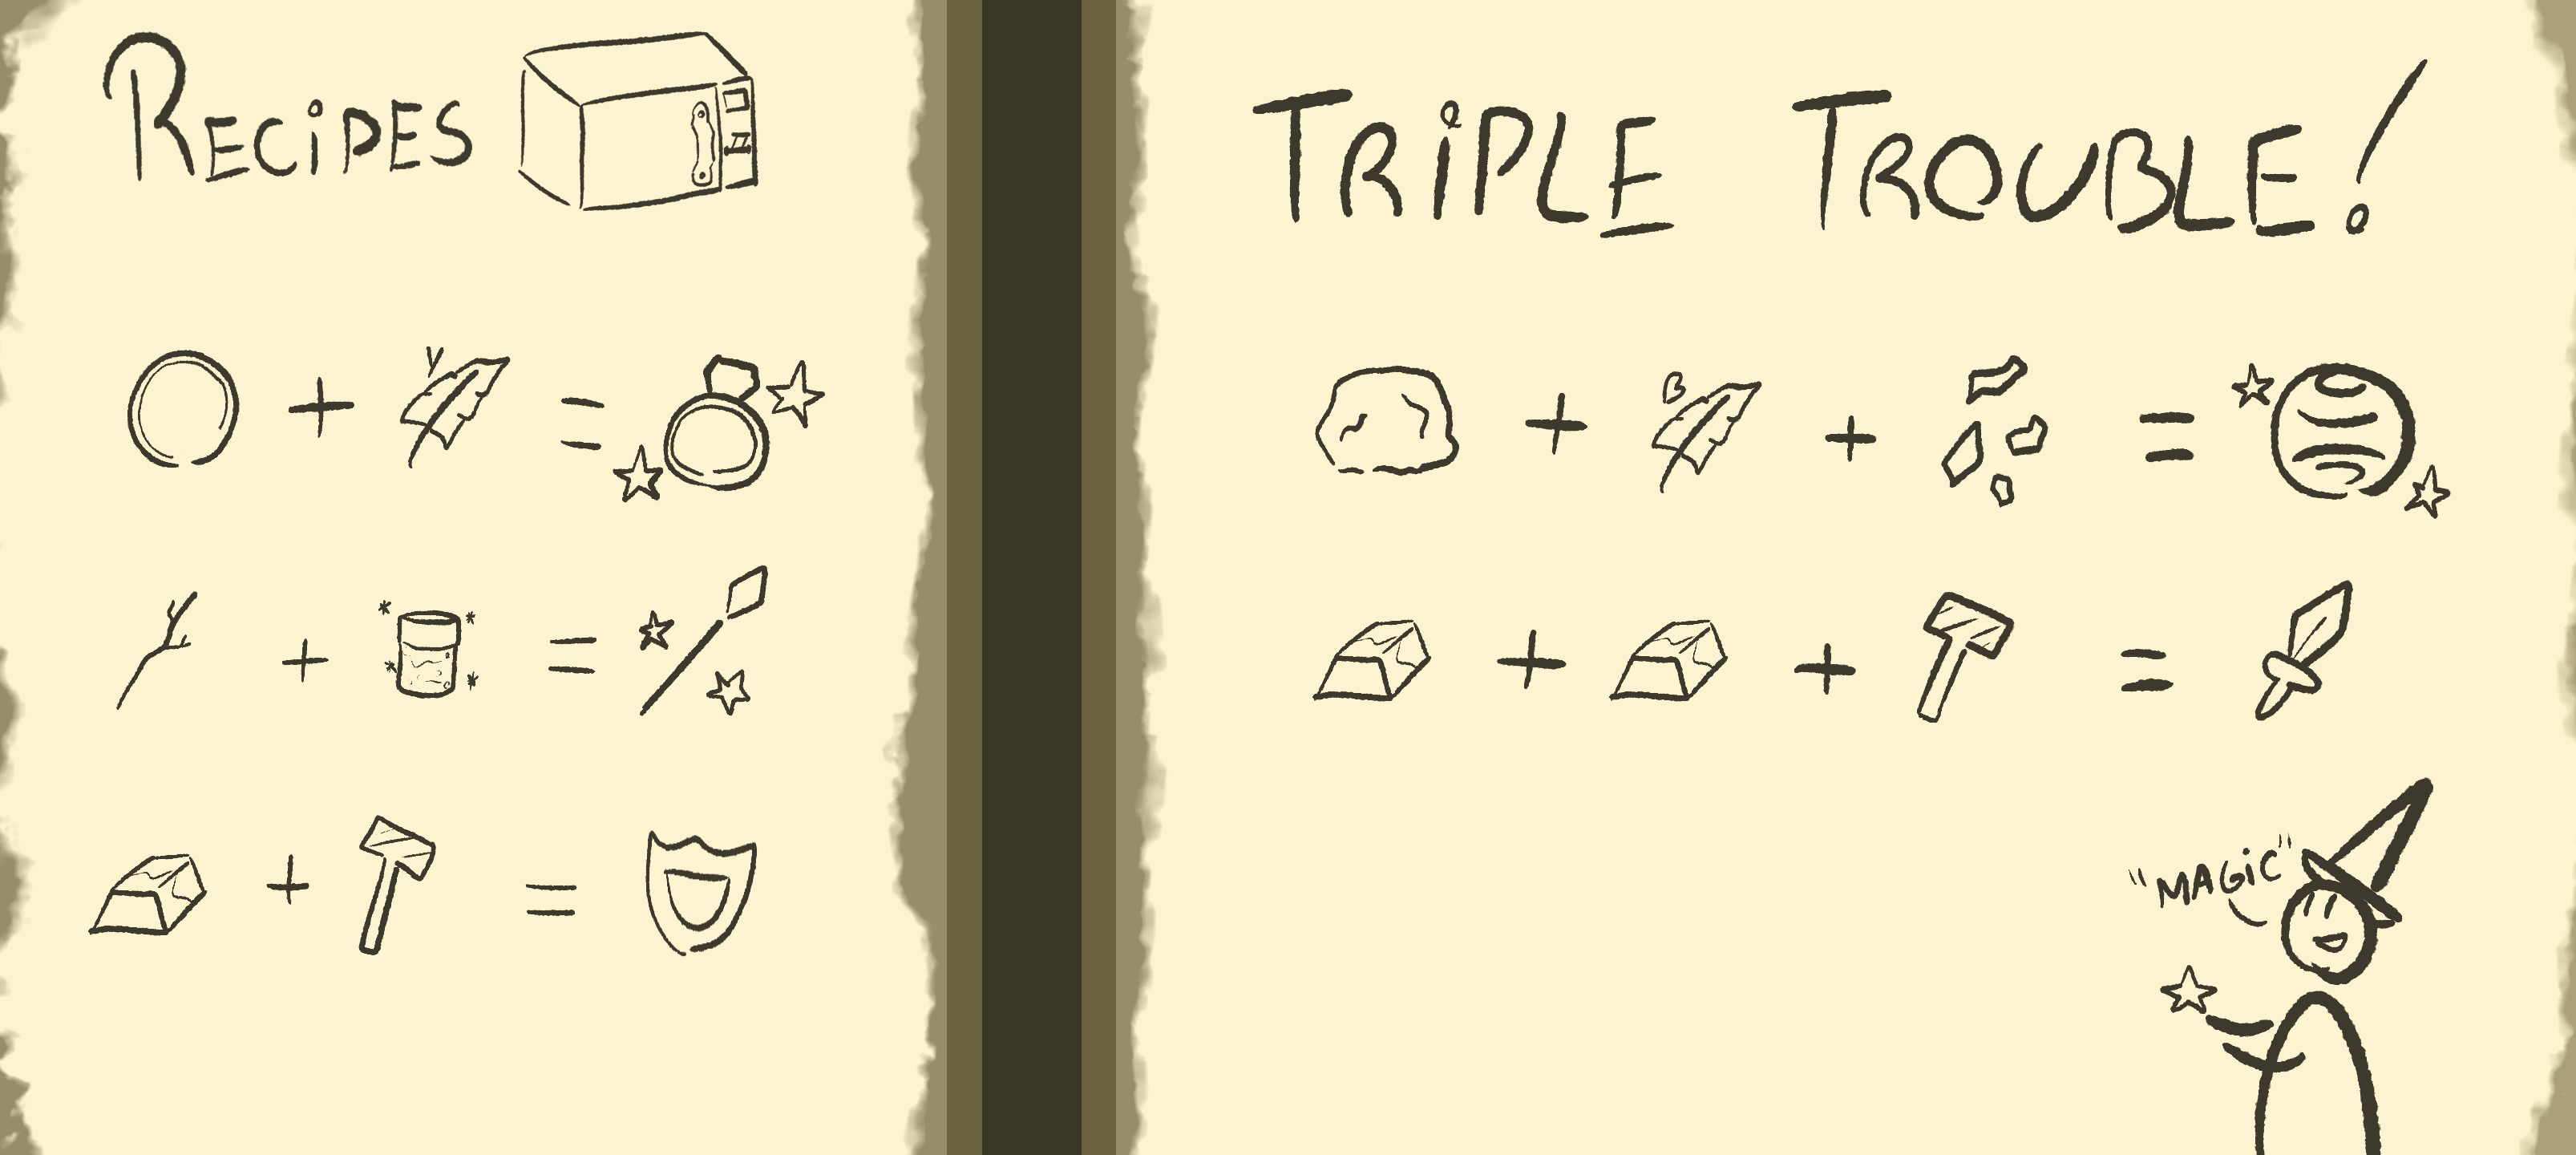 RECiPES
+ Y =
+ =
+ =
TRiPLE TROUBLE!
+ B + =
+ + =
"MAGiC"